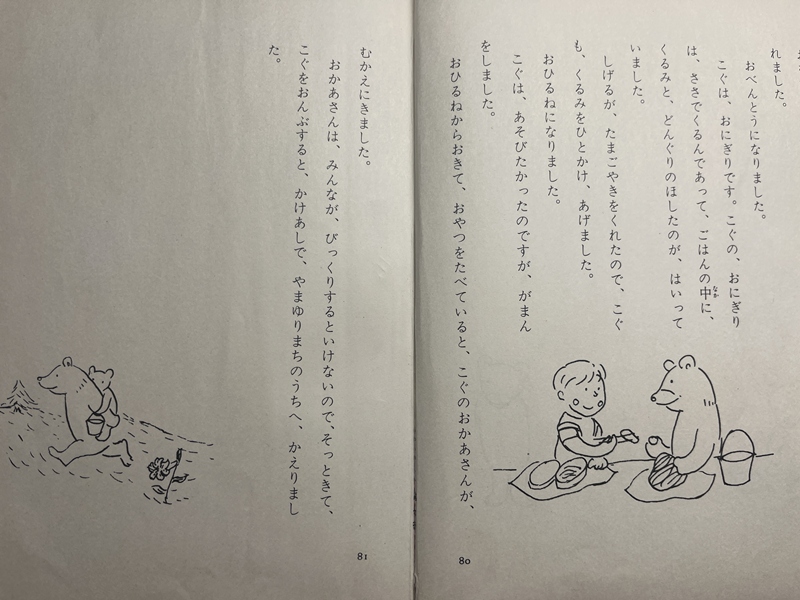 れました。
おべんとうになりました。
こぐは、おにぎりです。こぐの、おにぎり
は、ささでくるんであって、ごはんの中に、
なか
くるみと、どんぐりのほしたのが、はいって
いました。
しげるが、たまごやきをくれたので、こぐ
も、くるみをひとかけ、あげました。
おひるねになりました。
こぐは、あそびたかったのですが、がまん
をしました。
おひるねからおきて、おやつをたべていると、こぐのおかあさんが、
80
むかえにきました。
おかあさんは、みんなが、びっくりするといけないので、そっときて、
こぐをおんぶすると、かけあしで、やまゆりまちのうちへ、かえりまし
た。
81